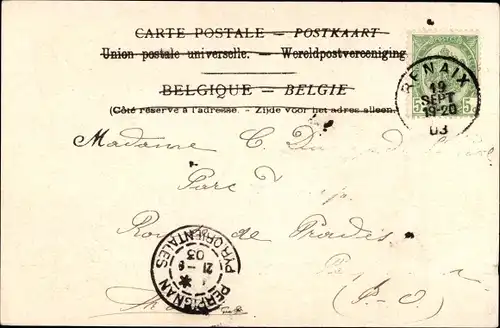 CARTE POSTALE – POSTKAART
Union postale universelle. – Wereldpostvereeniging
BELGIQUE – BELGIE
(Côté réservé à l'adresse. – Zijde voor het adres alleen.
5 5
RENAIX
19
SEPT
19-20
03
Madame C.
Parc
de Prades
(P-O)
PERPIGNAN
21 - 9
03
PYR. ORIENTALES